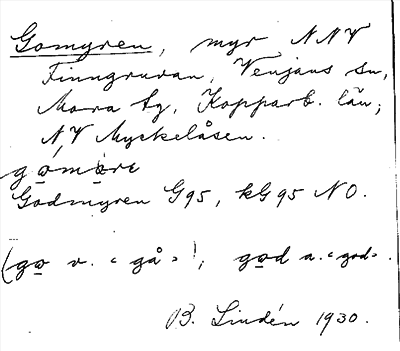 Gomyren, myr NNV
Finngruvan, Venjans sn,
Mora tg, Kopparb. län;
N,V Myckelåsen.
gomȯrє
Godmyren G95, kG95 NO.
(go v. "gå"), god a. "god".
B. Lindén 1930.